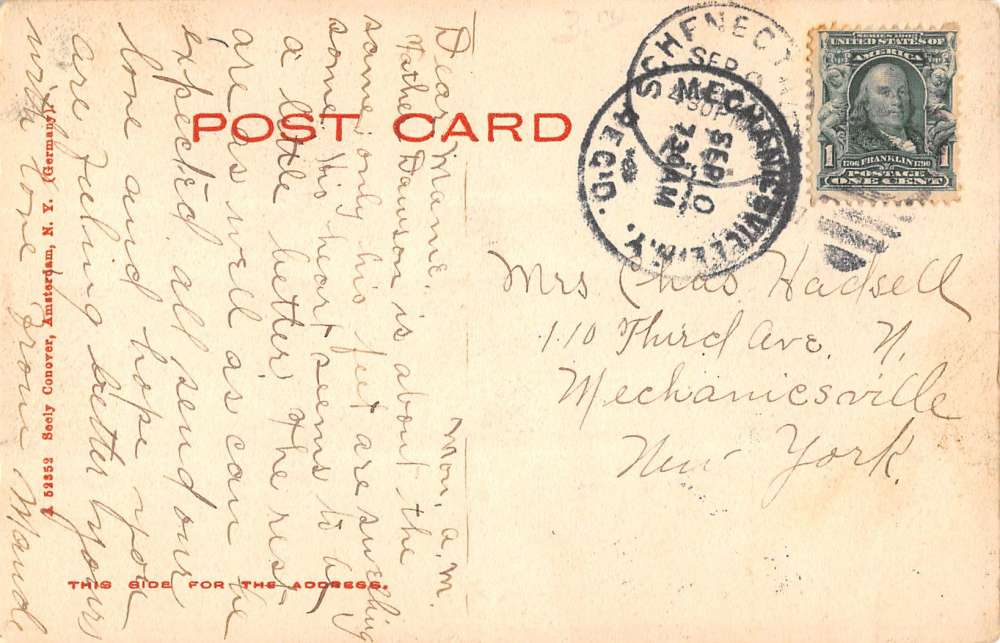 POST CARD
Mon. a.m.
Dear Mame.
Father Dawson is about the
same only his feet are swelling
some. His heart seems to be
a little better. The rest
are as well as can be
expected all send our
love and hope you
are feeling better Yours
with love from Maude
A 52352 Seely Conover, Amsterdam, N. Y. (Germany)
THIS SIDE FOR THE ADDRESS.
SCHENECTA
SEP
430P
MECHANICSVILLE, N.Y.
SEP 10
730AM
REC'D.
SERIES 1902
UNITED STATES OF
AMERICA
1706 FRANKLIN 1790
1 POSTAGE 1
ONE CENT
Mrs Chas Hadsell
110 Third Ave. N.
Mechanicsville
New York